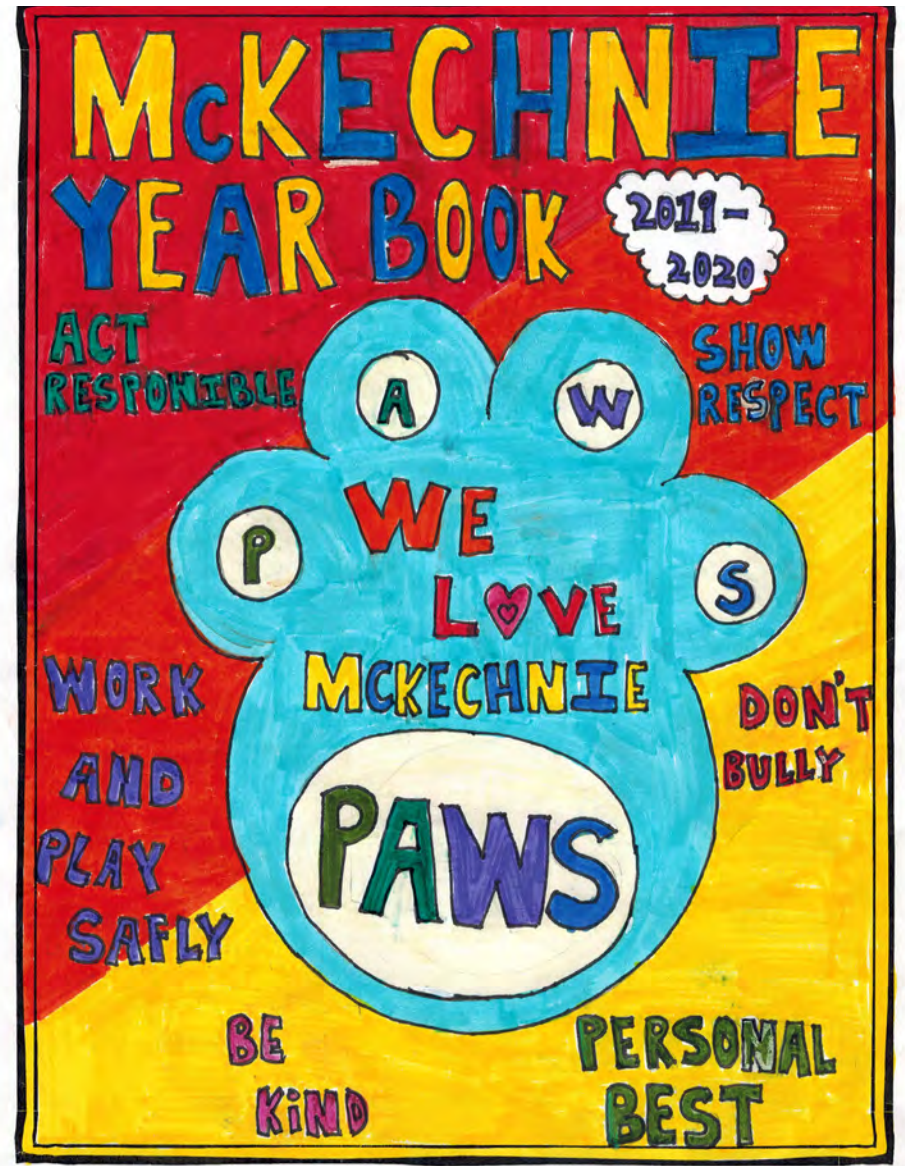 McKECHNIE
YEAR BOOK
2019-
2020
ACT
RESPONIBLE
SHOW
RESPECT
P
A
W
S
WE
LOVE
MCKECHNIE
PAWS
WORK
AND
PLAY
SAFLY
DON'T
BULLY
BE
KiND
PERSONAL
BEST